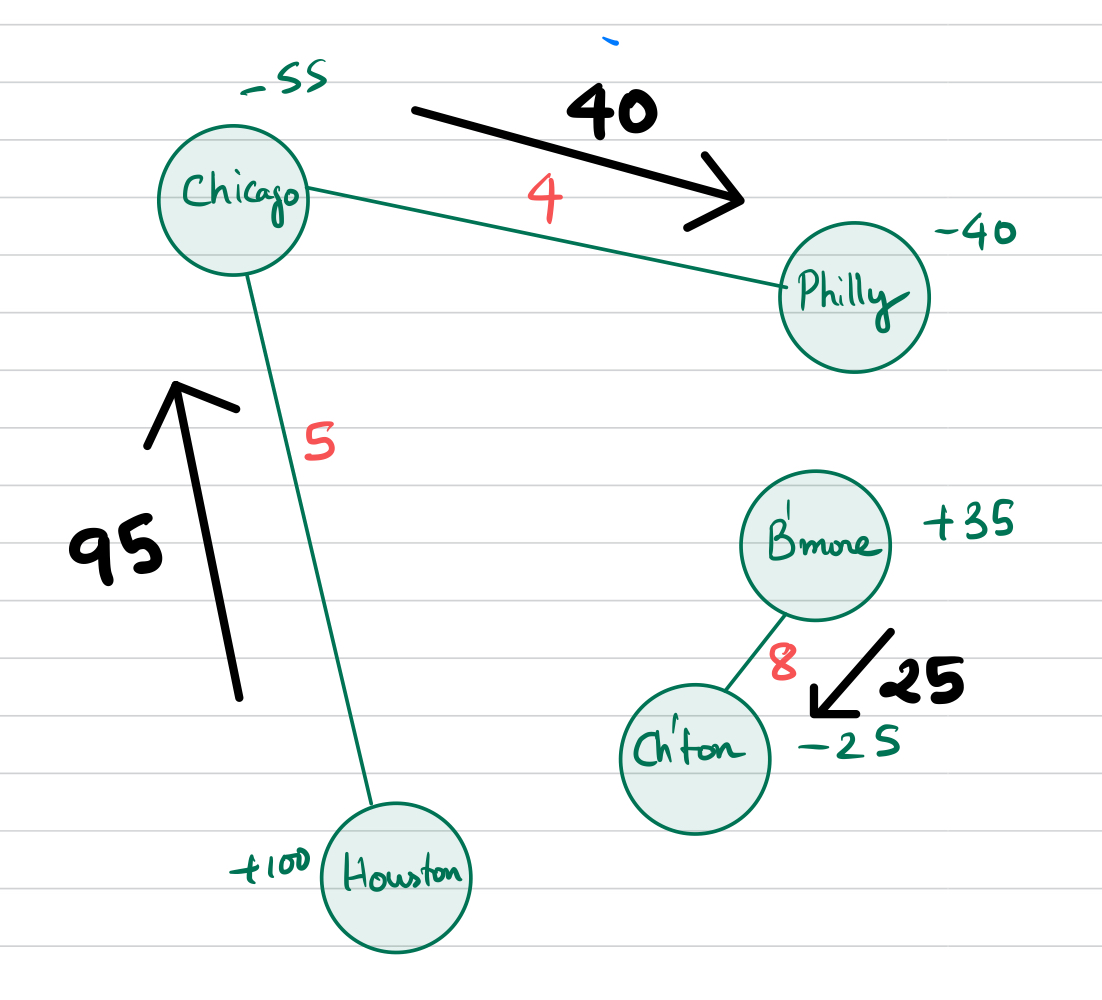 -55
40
Chicago
4
-40
Philly
5
95
B'more
+35
8
25
Ch'ton
-25
+100
Houston